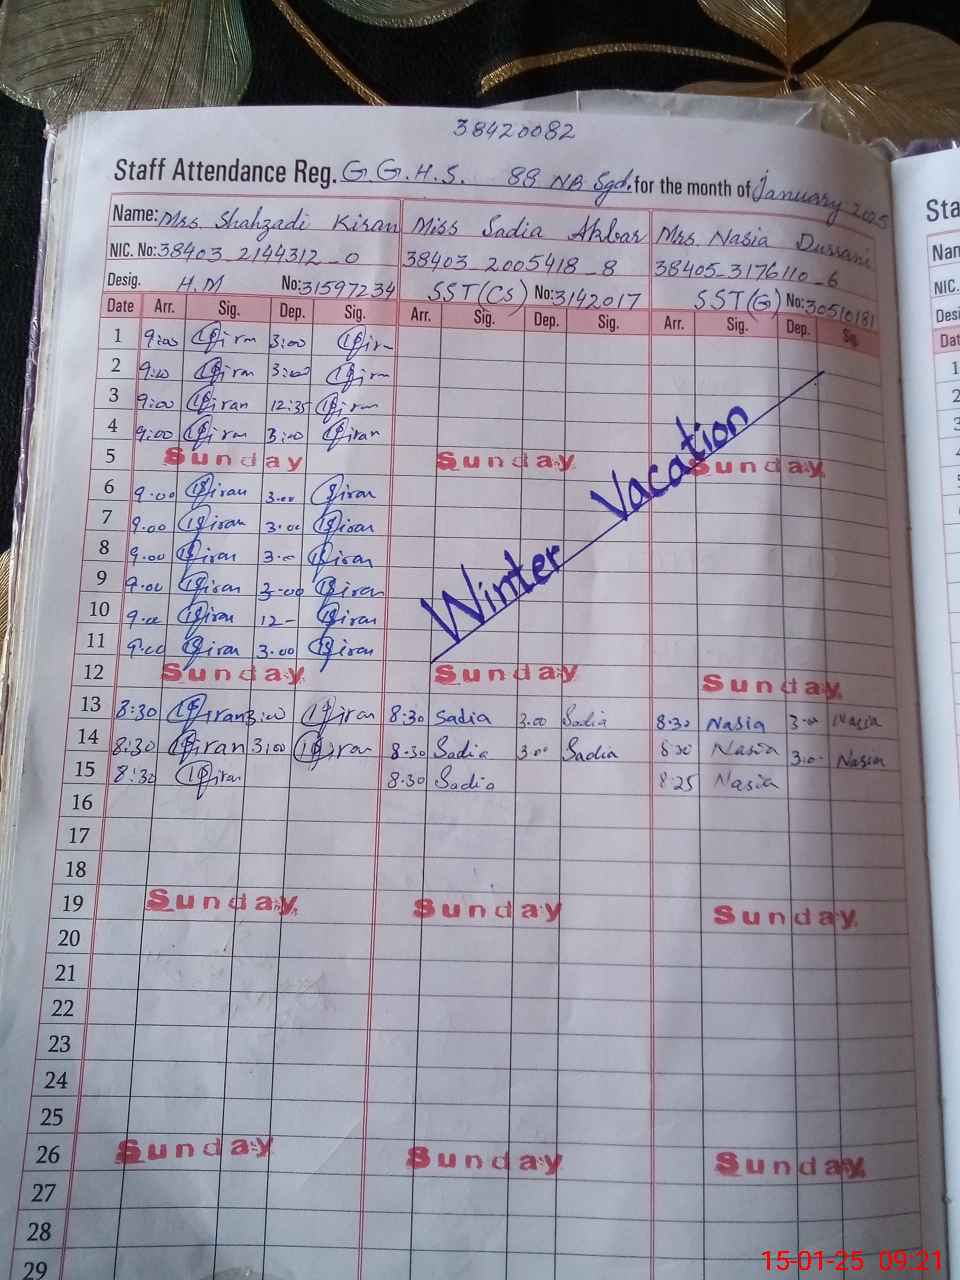 38420082
Staff Attendance Reg. G.G.H.S. 88 NB Sgd. for the month of January 2025
Name: Mrs. Shahzadi Kiran Miss Sadia Akbar Mrs. Nasia Durrani
NIC. No: 38403_2144312_0 38403_2005418_8 38405_3176110_6
Desig. H.M No: 31597234 SST(CS) No: 3142017 SST(G) No: 30510181
Date Arr. Sig. Dep. Sig. Arr. Sig. Dep. Sig. Arr. Sig. Dep. Sig.
1 9:00 Kiran 3:00 Kiran
2 9:00 Kiran 3:00 Kiran
3 9:00 Kiran 12:35 Kiran
4 9:00 Kiran 3:00 Kiran
5 Sunday Sunday Sunday
6 9.00 Kiran 3.00 Kiran
7 9.00 Kiran 3.00 Kiran
8 9.00 Kiran 3.00 Kiran
9 9.00 Kiran 3.00 Kiran
10 9.00 Kiran 12- Kiran
11 9.00 Kiran 3.00 Kiran
Winter Vacation
12 Sunday Sunday Sunday
13 8:30 Kiran 3:00 Kiran 8:30 Sadia 3.00 Sadia 8.30 Nasia 3.00 Nasia
14 8:30 Kiran 3:00 Kiran 8.30 Sadia 3.00 Sadia 8.30 Nasia 3.00 Nasia
15 8:30 Kiran 8.30 Sadia 8:25 Nasia
16
17
18
19 Sunday Sunday Sunday
20
21
22
23
24
25
26 Sunday Sunday Sunday
27
28
29
Sta
Nan
NIC.
Desi
Dat
1
2
3
4
15-01-25 09:21